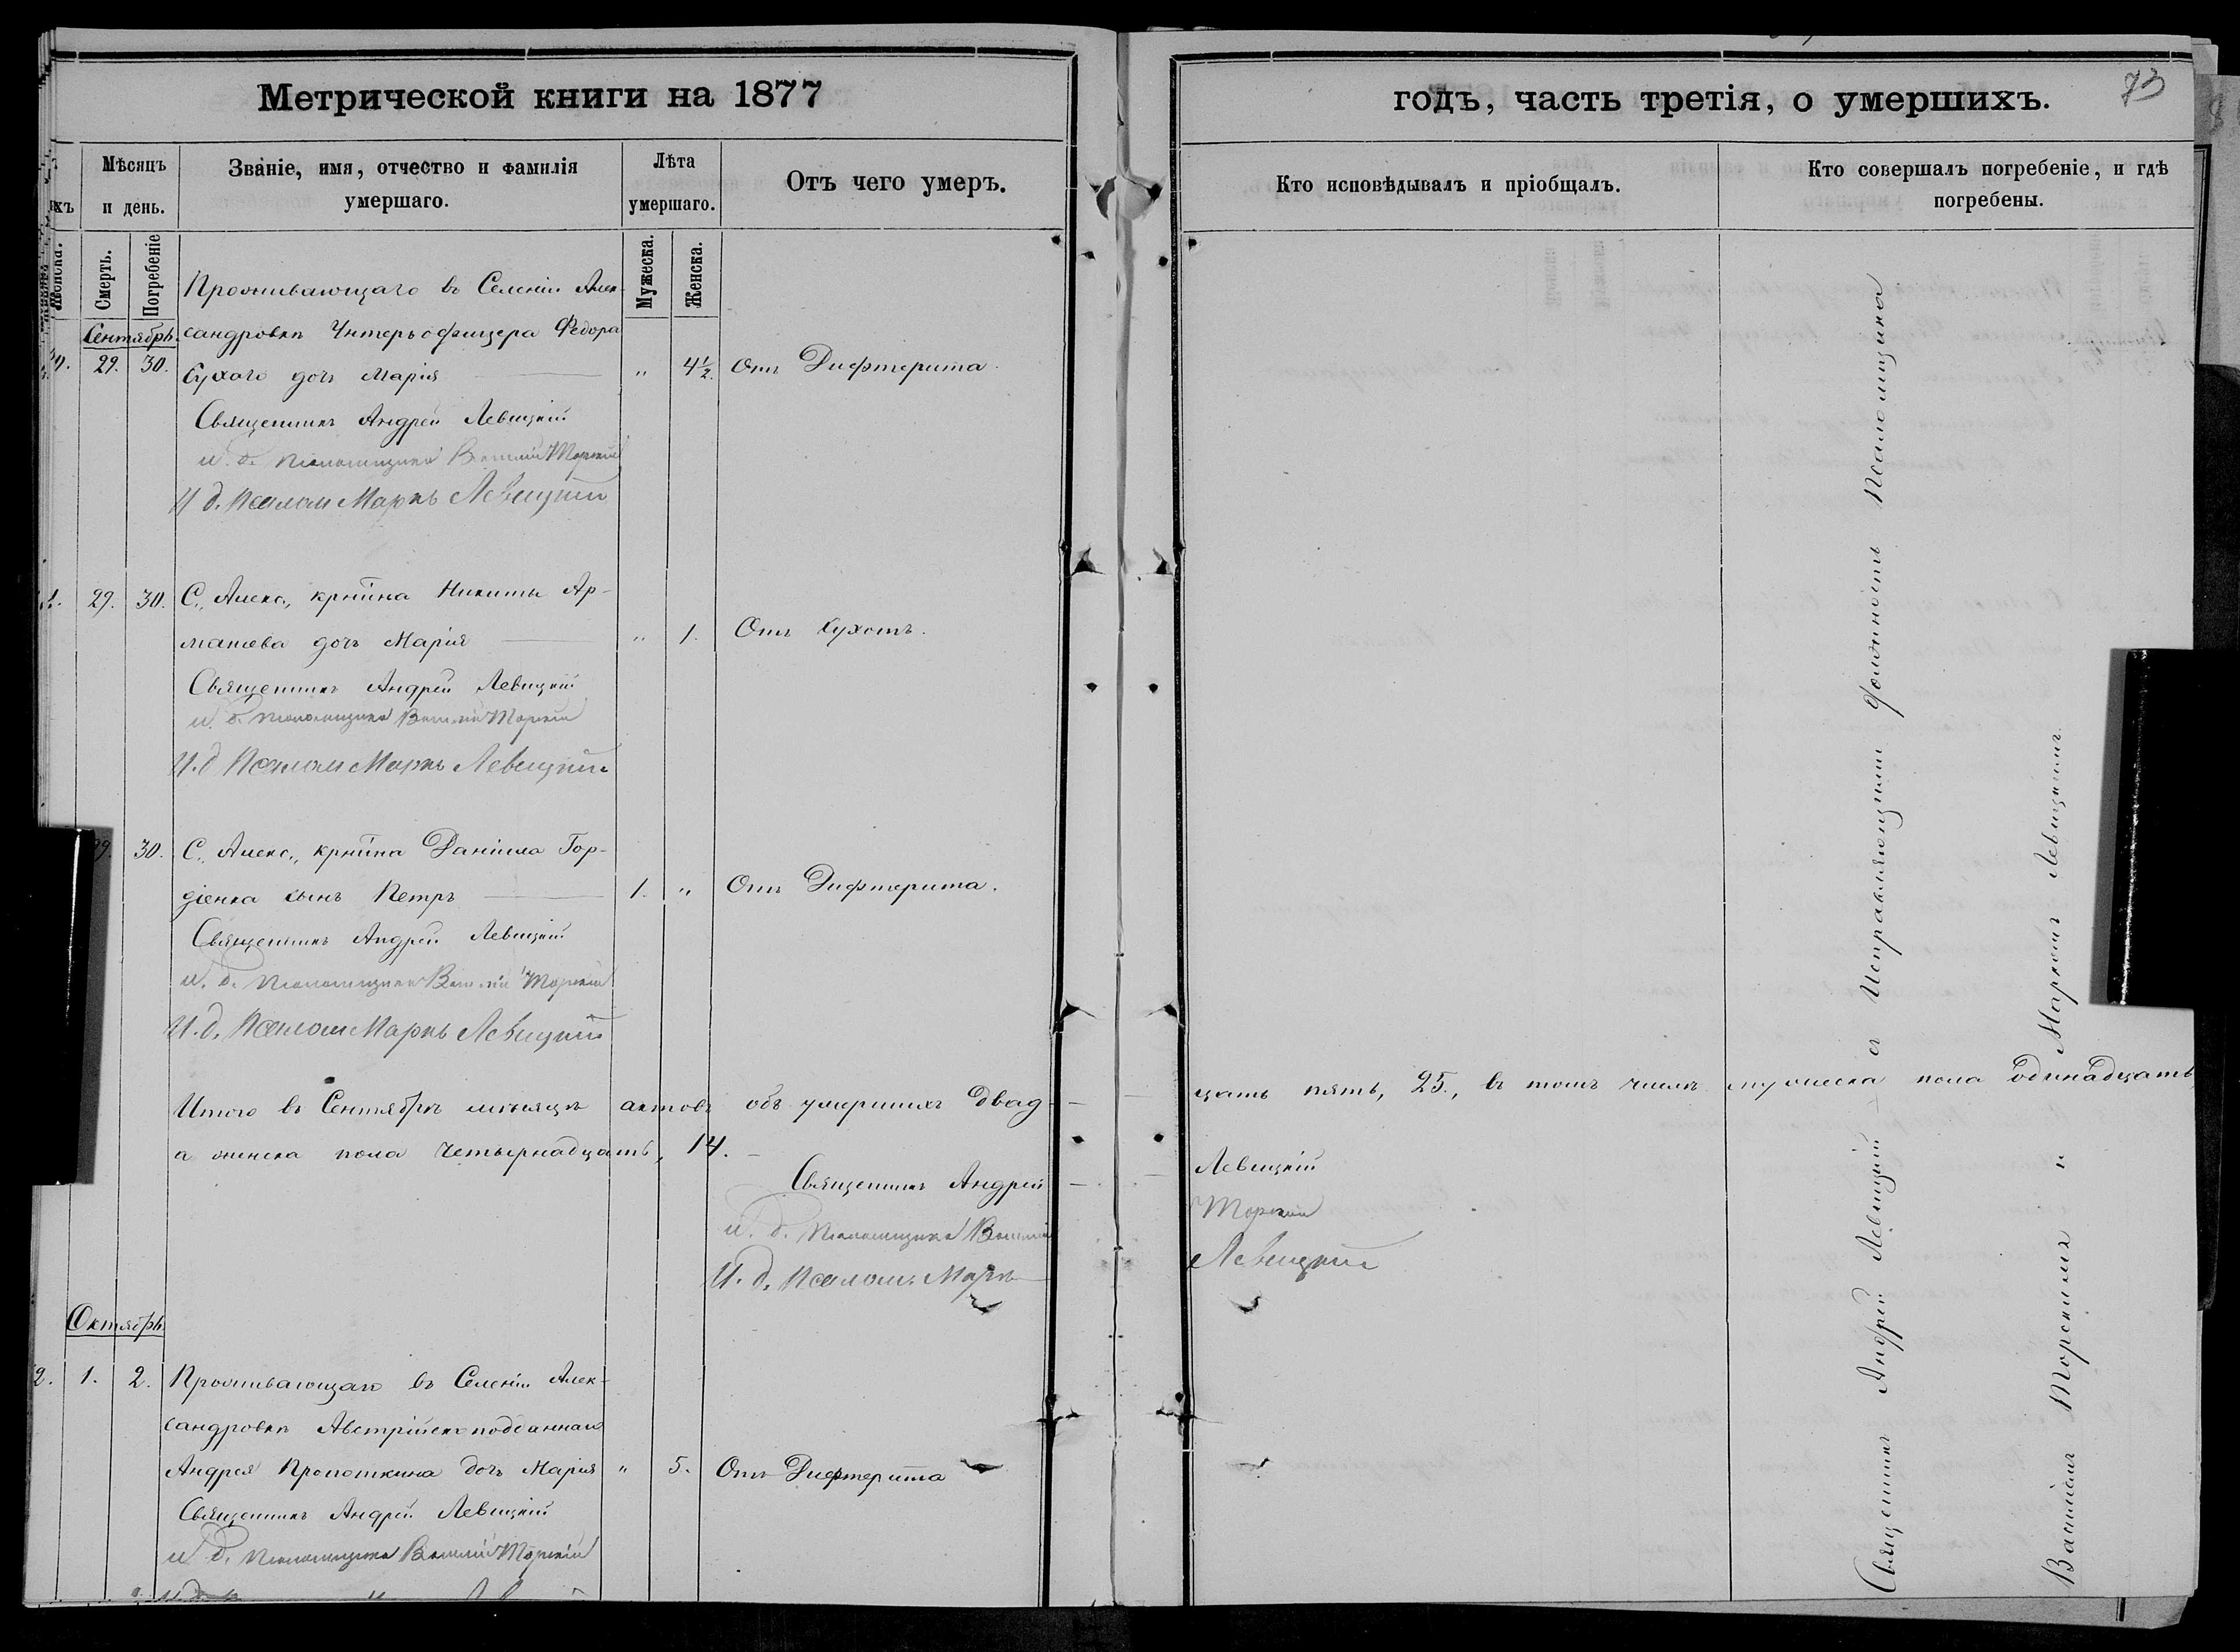 Метрической книги на 1877
хъ
Мѣсяцъ и день.
Званіе, имя, отчество и фамилія умершаго.
Лѣта умершаго.
Отъ чего умеръ.
Женска.
Смерть.
Погребеніе
Мужеска.
Женска.
Проживающаго въ Селеніи Алек-
Сентябрь. сандровкѣ Унтеръ офицера Федора
29. 30. Сухаго дочь Марія " 4½. Отъ Дифтерита.
Священникъ Андрей Левицкій
и. д. псаломщика Василій Торскій
И д. Псалом Маркъ Левицкій
29. 30. С. Алекс., крѣстина Никиты Ар-
дочь Марія " 1. Отъ Сухотъ.
Священникъ Андрей Левицкій
и. д. псаломщика Василій Торскій
И. д Псалом Маркъ Левицкій
30. С. Алекс., Даніила Гор-
діенка сынъ Петръ 1. " Отъ Дифтерита.
Священникъ Андрей Левицкій
и. д. псаломщика Василій Торскій
И. д. Псалом Маркъ Левицкій
Итого въ Сентябрѣ мѣсяцѣ актовъ объ умершихъ двад-
а женска пола четырнадцать, 14.
Священникъ Андрей
и. д. псаломщика Василій
И. д. Псалом. Маркъ
Октябрь.
2. 1. 2. Проживающаго въ Селеніи Алек-
сандровкѣ Австрійскоподданнаго
Андрея Пропоткина дочь Марія " 5. Отъ Дифтерита
Священникъ Андрей Левицкій
и. д. псаломщика Василій Торскій
годъ, часть третія, о умершихъ.
73
Кто исповѣдывалъ и пріобщалъ.
Кто совершалъ погребеніе, и гдѣ погребены.
цать пять, 25., въ томъ числѣ мужеска пола одинадцать
Левицкій
Торскій
Левицкій
Священникъ Андрей Левицкій съ Исправляющими должность псаломщика
Василіемъ Торскимъ и Маркомъ Левицкимъ.